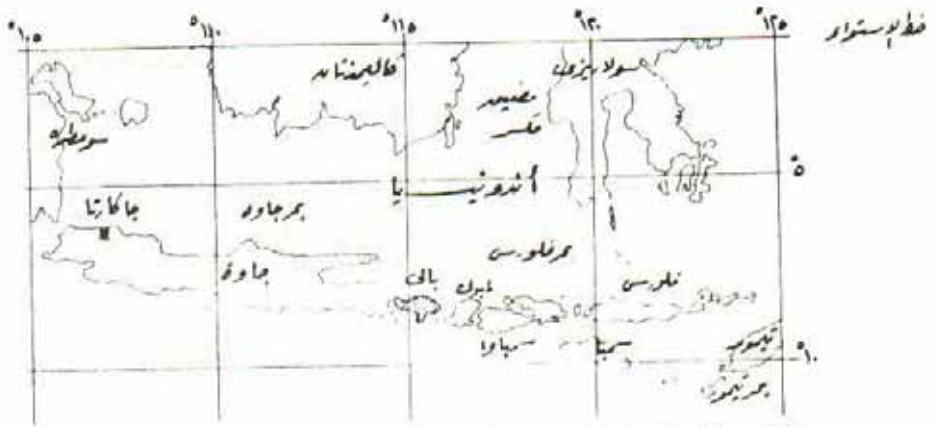 °١٠٥ °١١٠ °١١٥ °١٢٠ °١٢٥
خط الإستواء
كاليمنتان
سولاويزى
مضيق
مكسر
سومطره
°٥
أندونيسيا
جاكارتا
بحر جاوه
جاوة
بحر فلورس
بالى
فلورس
سمباوا
سمبا
°١٠
تيمور
بحر تيمور